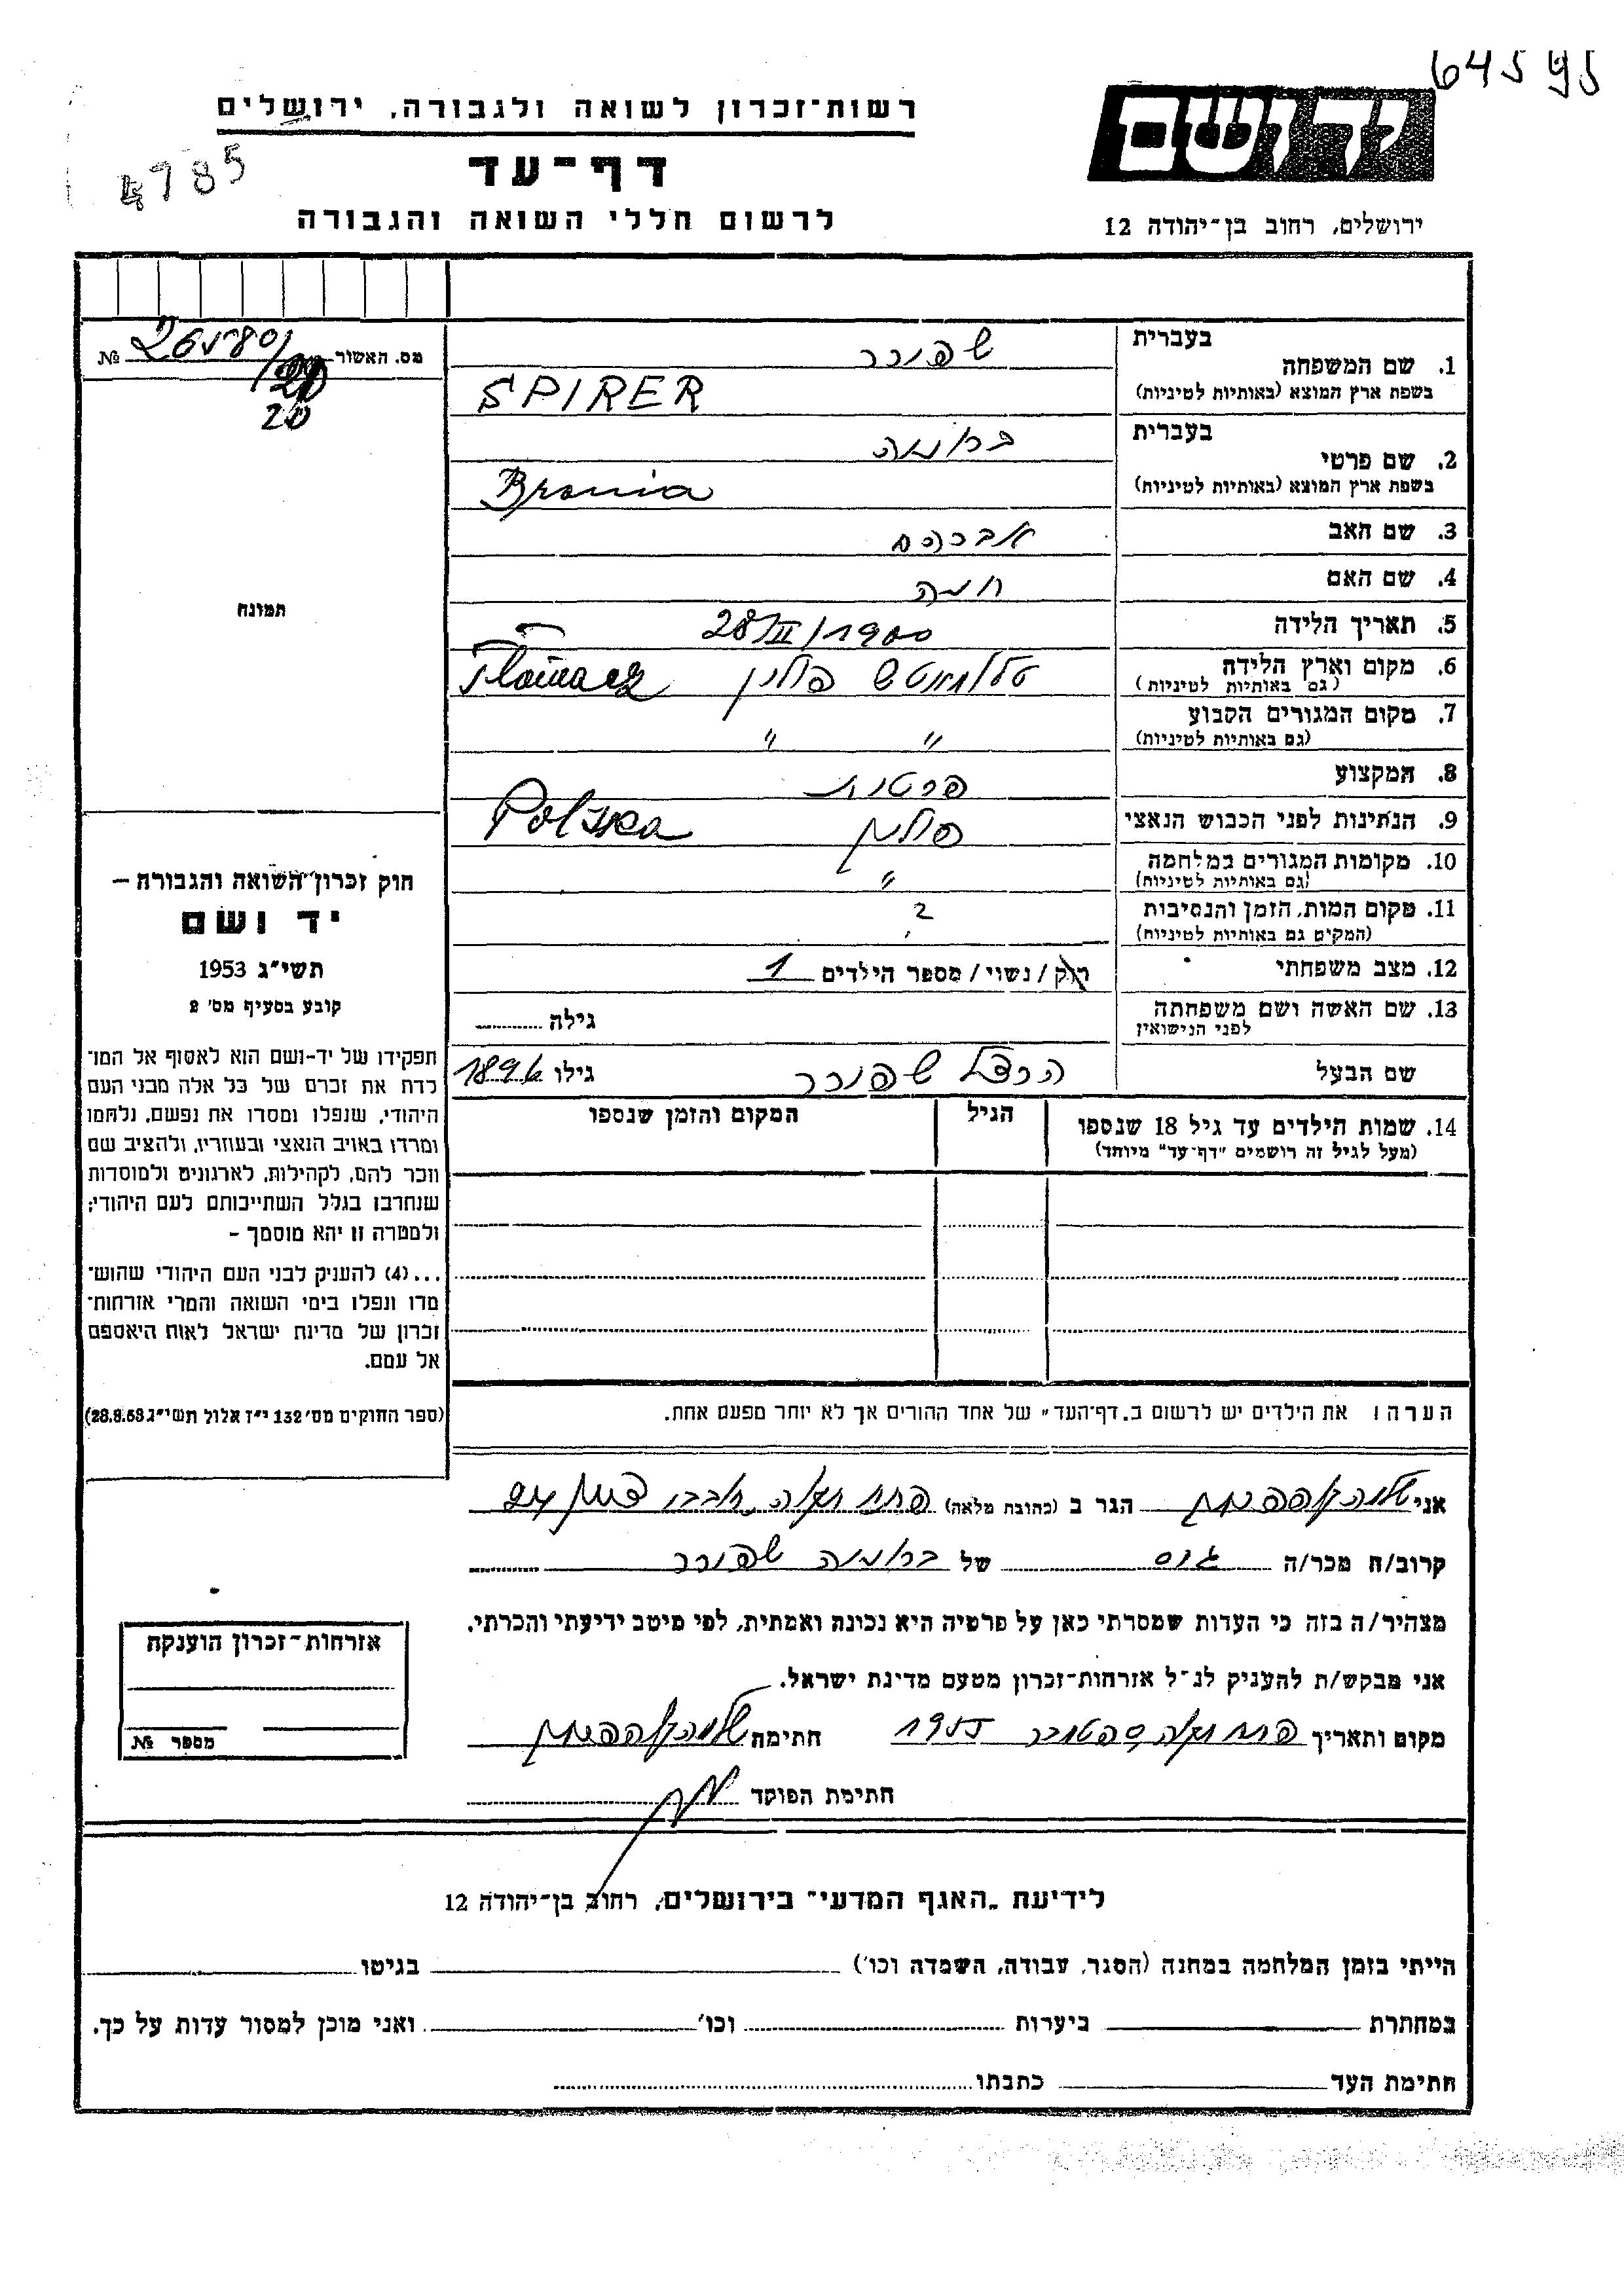 64595
רשות־זכרון לשואה ולגבורה, ירושלים
יד ושם
4785
דף־עד
לרשום חללי השואה והגבורה
ירושלים, רחוב בן־יהודה 12
מס. האשור № 265780/
20
בעברית שפירר
1. שם המשפחה
בשפת ארץ המוצא (באותיות לטיניות) SPIRER
בעברית ברוניה
2. שם פרטי
בשפת ארץ המוצא (באותיות לטיניות) Bronia
3. שם האב אברהם
4. שם האם חיה
5. תאריך הלידה 28/II/1900
6. מקום וארץ הלידה פולין
(גם באותיות לטיניות) Tłomacz
7. מקום המגורים הקבוע " "
(גם באותיות לטיניות)
8. המקצוע
9. הנתינות לפני הכבוש הנאצי פולין Polska
10. מקומות המגורים במלחמה "
(גם באותיות לטיניות)
11. מקום המות, הזמן והנסיבות ?
(המקום גם באותיות לטיניות)
12. מצב משפחתי רוק/נשוי/מספר הילדים 1
13. שם האשה ושם משפחתה גילה
לפני הנישואין
שם הבעל הרצל שפירר גילו 1896
14. שמות הילדים עד גיל 18 שנספו הגיל המקום והזמן שנספו
(מעל לגיל זה רושמים "דף־עד" מיוחד)
תמונה
חוק זכרון השואה והגבורה –
יד ושם
תשי"ג 1953
קובע בסעיף מס' 2
תפקידו של יד-ושם הוא לאסוף אל המו־
לדת את זכרם של כל אלה מבני העם
היהודי, שנפלו ומסרו את נפשם, נלחמו
ומרדו באויב הנאצי ובעוזריו, ולהציב שם
וזכר להם, לקהילות, לארגונים ולמוסדות
שנחרבו בגלל השתייכותם לעם היהודי;
ולמטרה זו יהא מוסמך –
...(4) להעניק לבני העם היהודי שהוש־
מדו ונפלו בימי השואה והמרי אזרחות־
זכרון של מדינת ישראל לאות היאספם
אל עמם.
(ספר החוקים מס' 132 י"ז אלול תשי"ג 28.8.53)
הערה: את הילדים יש לרשום ב"דף־העד" של אחד ההורים אך לא יותר מפעם אחת.
אני הגר ב (כתובת מלאה) פתח תקוה
קרוב/ה מכר/ה גיס של ברוניה שפירר
מצהיר/ה בזה כי העדות שמסרתי כאן על פרטיה היא נכונה ואמתית, לפי מיטב ידיעתי והכרתי.
אני מבקש/ת להעניק לנ"ל אזרחות־זכרון מטעם מדינת ישראל.
מקום ותאריך פתח תקוה ספטמבר 1955 חתימה
חתימת הפוקד
אזרחות־זכרון הוענקה
מספר №
לידיעת "האגף המדעי" בירושלים, רחוב בן־יהודה 12
הייתי בזמן המלחמה במחנה (הסגר, עבודה, השמדה וכו') בגיטו
במחתרת ביערות וכו' ואני מוכן למסור עדות על כך.
חתימת העד כתבתו